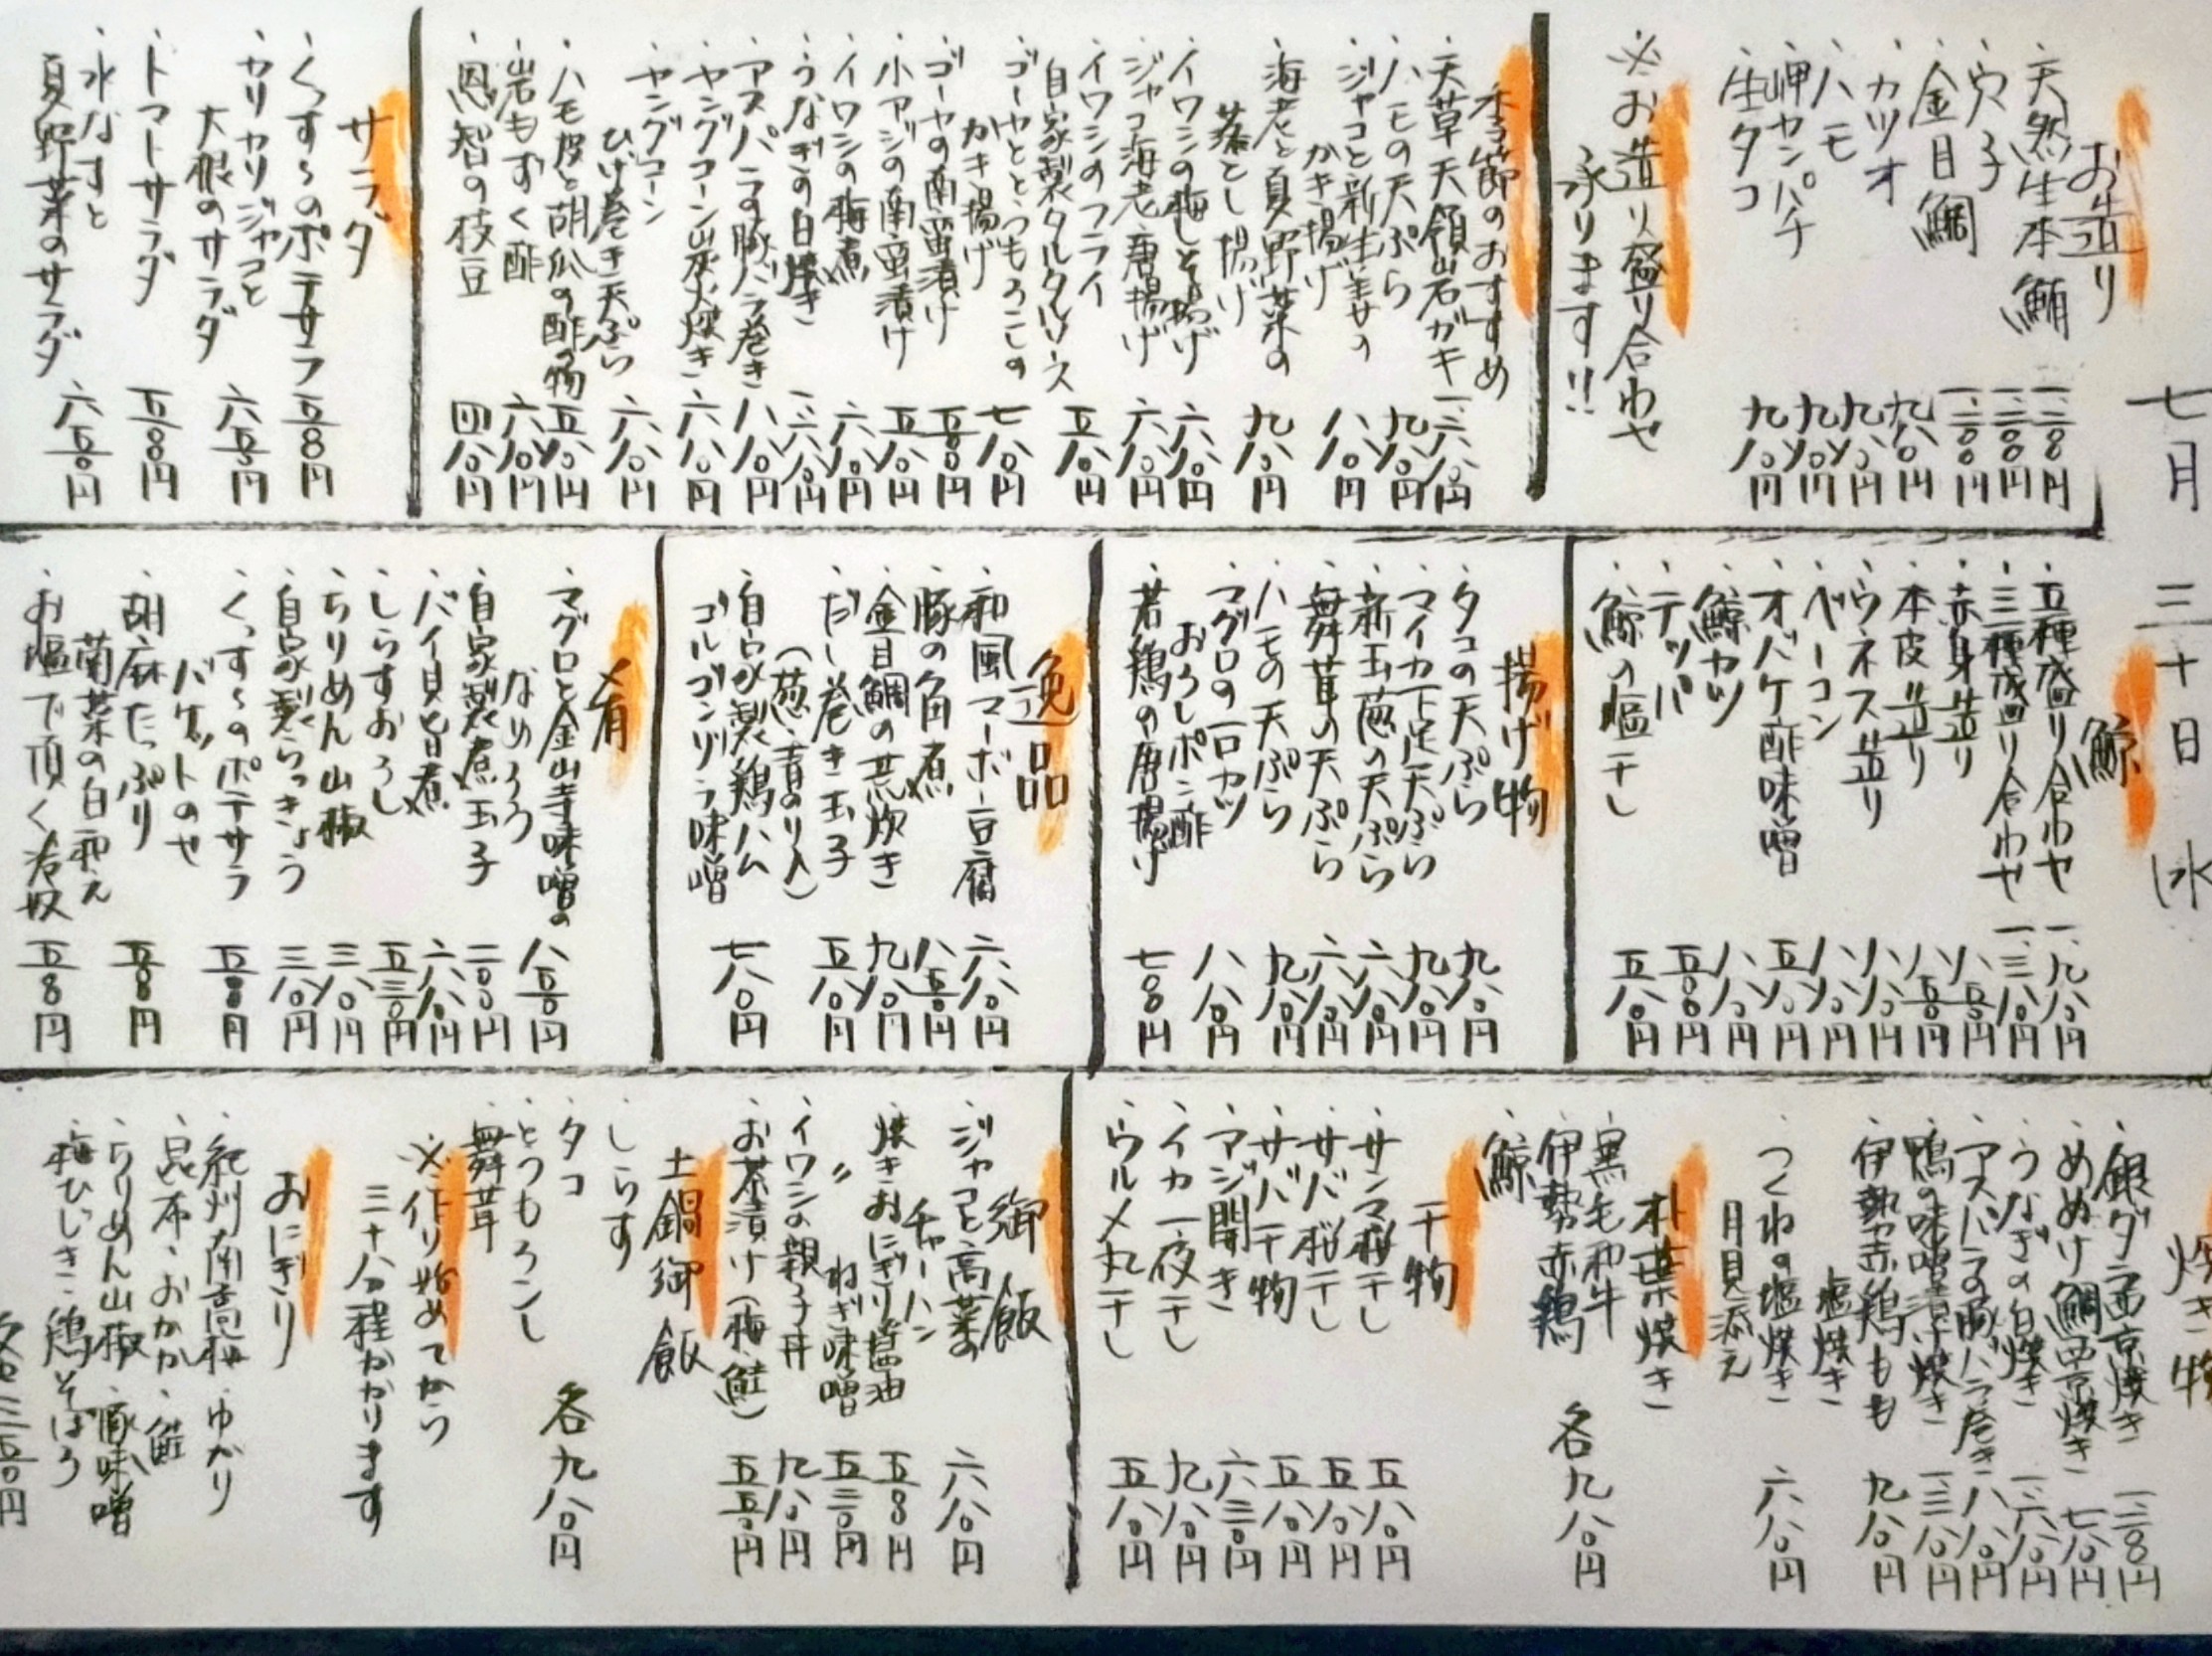 七月三十日(水
お造り
・天然生本鮪 一、三〇〇円
・穴子 一、二〇〇円
・金目鯛 一、二〇〇円
・カツオ 九八〇円
・ハモ 九八〇円
・岬カンパチ 九八〇円
・生タコ 九八〇円
※お造り盛り合わせ
承ります!!
季節のおすすめ
・天草天領岩ガキ 一、六八〇円
・ハモの天ぷら 九八〇円
・ジャコと新生姜の
かき揚げ 八八〇円
・海老と夏野菜の
落とし揚げ 九八〇円
・イワシの梅しそ揚げ 六八〇円
・ジャコ海老唐揚げ 六八〇円
・イワシのフライ
自家製タルタルソース 五八〇円
・ゴーヤととうもろこしの
かき揚げ 七八〇円
・ゴーヤの南蛮漬け 五五〇円
・小アジの南蛮漬け 五八〇円
・イワシの梅煮 六八〇円
・うなぎの白焼き 一、六八〇円
・アスパラの豚バラ巻き 八八〇円
・ヤングコーン炭火焼き 六八〇円
・ヤングコーン
ひげ巻き天ぷら 六八〇円
・ハモ皮と胡瓜の酢の物 五八〇円
・岩もずく酢 六八〇円
・恩智の枝豆 四八〇円
サラダ
・くっすーのポテサラ 五五〇円
・カリカリジャコと
大根のサラダ 六五〇円
・トマトサラダ 五五〇円
・水なすと
夏野菜のサラダ 六五〇円
鯨
・五種盛り合わせ 一、九八〇円
・三種盛り合わせ 一、三八〇円
・赤身造り 八五〇円
・本皮造り 八五〇円
・ウネス造り 八八〇円
・ベーコン 八八〇円
・オバケ酢味噌 五八〇円
・鯨カツ 八八〇円
・テッパ 五五〇円
・鯨の塩干し 五八〇円
揚げ物
・タコの天ぷら 九八〇円
・マイカ下足天ぷら 九八〇円
・新玉葱の天ぷら 六八〇円
・舞茸の天ぷら 六八〇円
・ハモの天ぷら 九八〇円
・マグロの一口カツ
おろしポン酢 八八〇円
・若鶏の唐揚げ 七五〇円
逸品
・和風マーボー豆腐 六八〇円
・豚の角煮 八五〇円
・金目鯛の荒炊き 九八〇円
・だし巻き玉子
(葱・青のり入) 五八〇円
・自家製鶏ハム
ゴルゴンゾーラ味噌 七八〇円
肴
・マグロと金山寺味噌の
なめろう 八五〇円
・自家製煮玉子 二〇〇円
・バイ貝旨煮 六八〇円
・しらすおろし 五三〇円
・ちりめん山椒 三八〇円
・自家製らっきょう 三八〇円
・くっすーのポテサラ
バケットのせ 五五〇円
・胡麻たっぷり
菊菜の白和え 五五〇円
・お塩で頂く冷奴 五五〇円
焼き物
・銀ダラ西京焼き 一、三五〇円
・めぬけ鯛西京焼き 七八〇円
・うなぎの白焼き 一、六八〇円
・アスパラの豚バラ巻き 八八〇円
・鴨の味噌漬け焼き 一、三八〇円
・伊勢赤鶏もも
塩焼き 九八〇円
・つくねの塩焼き
月見添え 六八〇円
朴葉焼き
・黒毛和牛
・伊勢赤鶏
・鯨
各九八〇円
干物
・サンマ桜干し 五八〇円
・サバ桜干し 五八〇円
・サバ干物 五八〇円
・アジ開き 六三〇円
・イカ一夜干し 九八〇円
・ウルメ丸干し 五八〇円
御飯
・ジャコと高菜の
チャーハン 六八〇円
・焼きおにぎり醤油 五五〇円
・〃 ねぎ味噌 五三〇円
・イワシの親子丼 九八〇円
・お茶漬け(梅・鮭) 五五〇円
土鍋御飯
・しらす
・タコ
・とうもろこし
・舞茸
各九八〇円
※作り始めてから
三十分程かかります
おにぎり
・紀州南高梅・ゆかり
・昆布・おかか・鮭
・ちりめん山椒・豚味噌
・梅ひじき・鶏そぼろ
各二五〇円